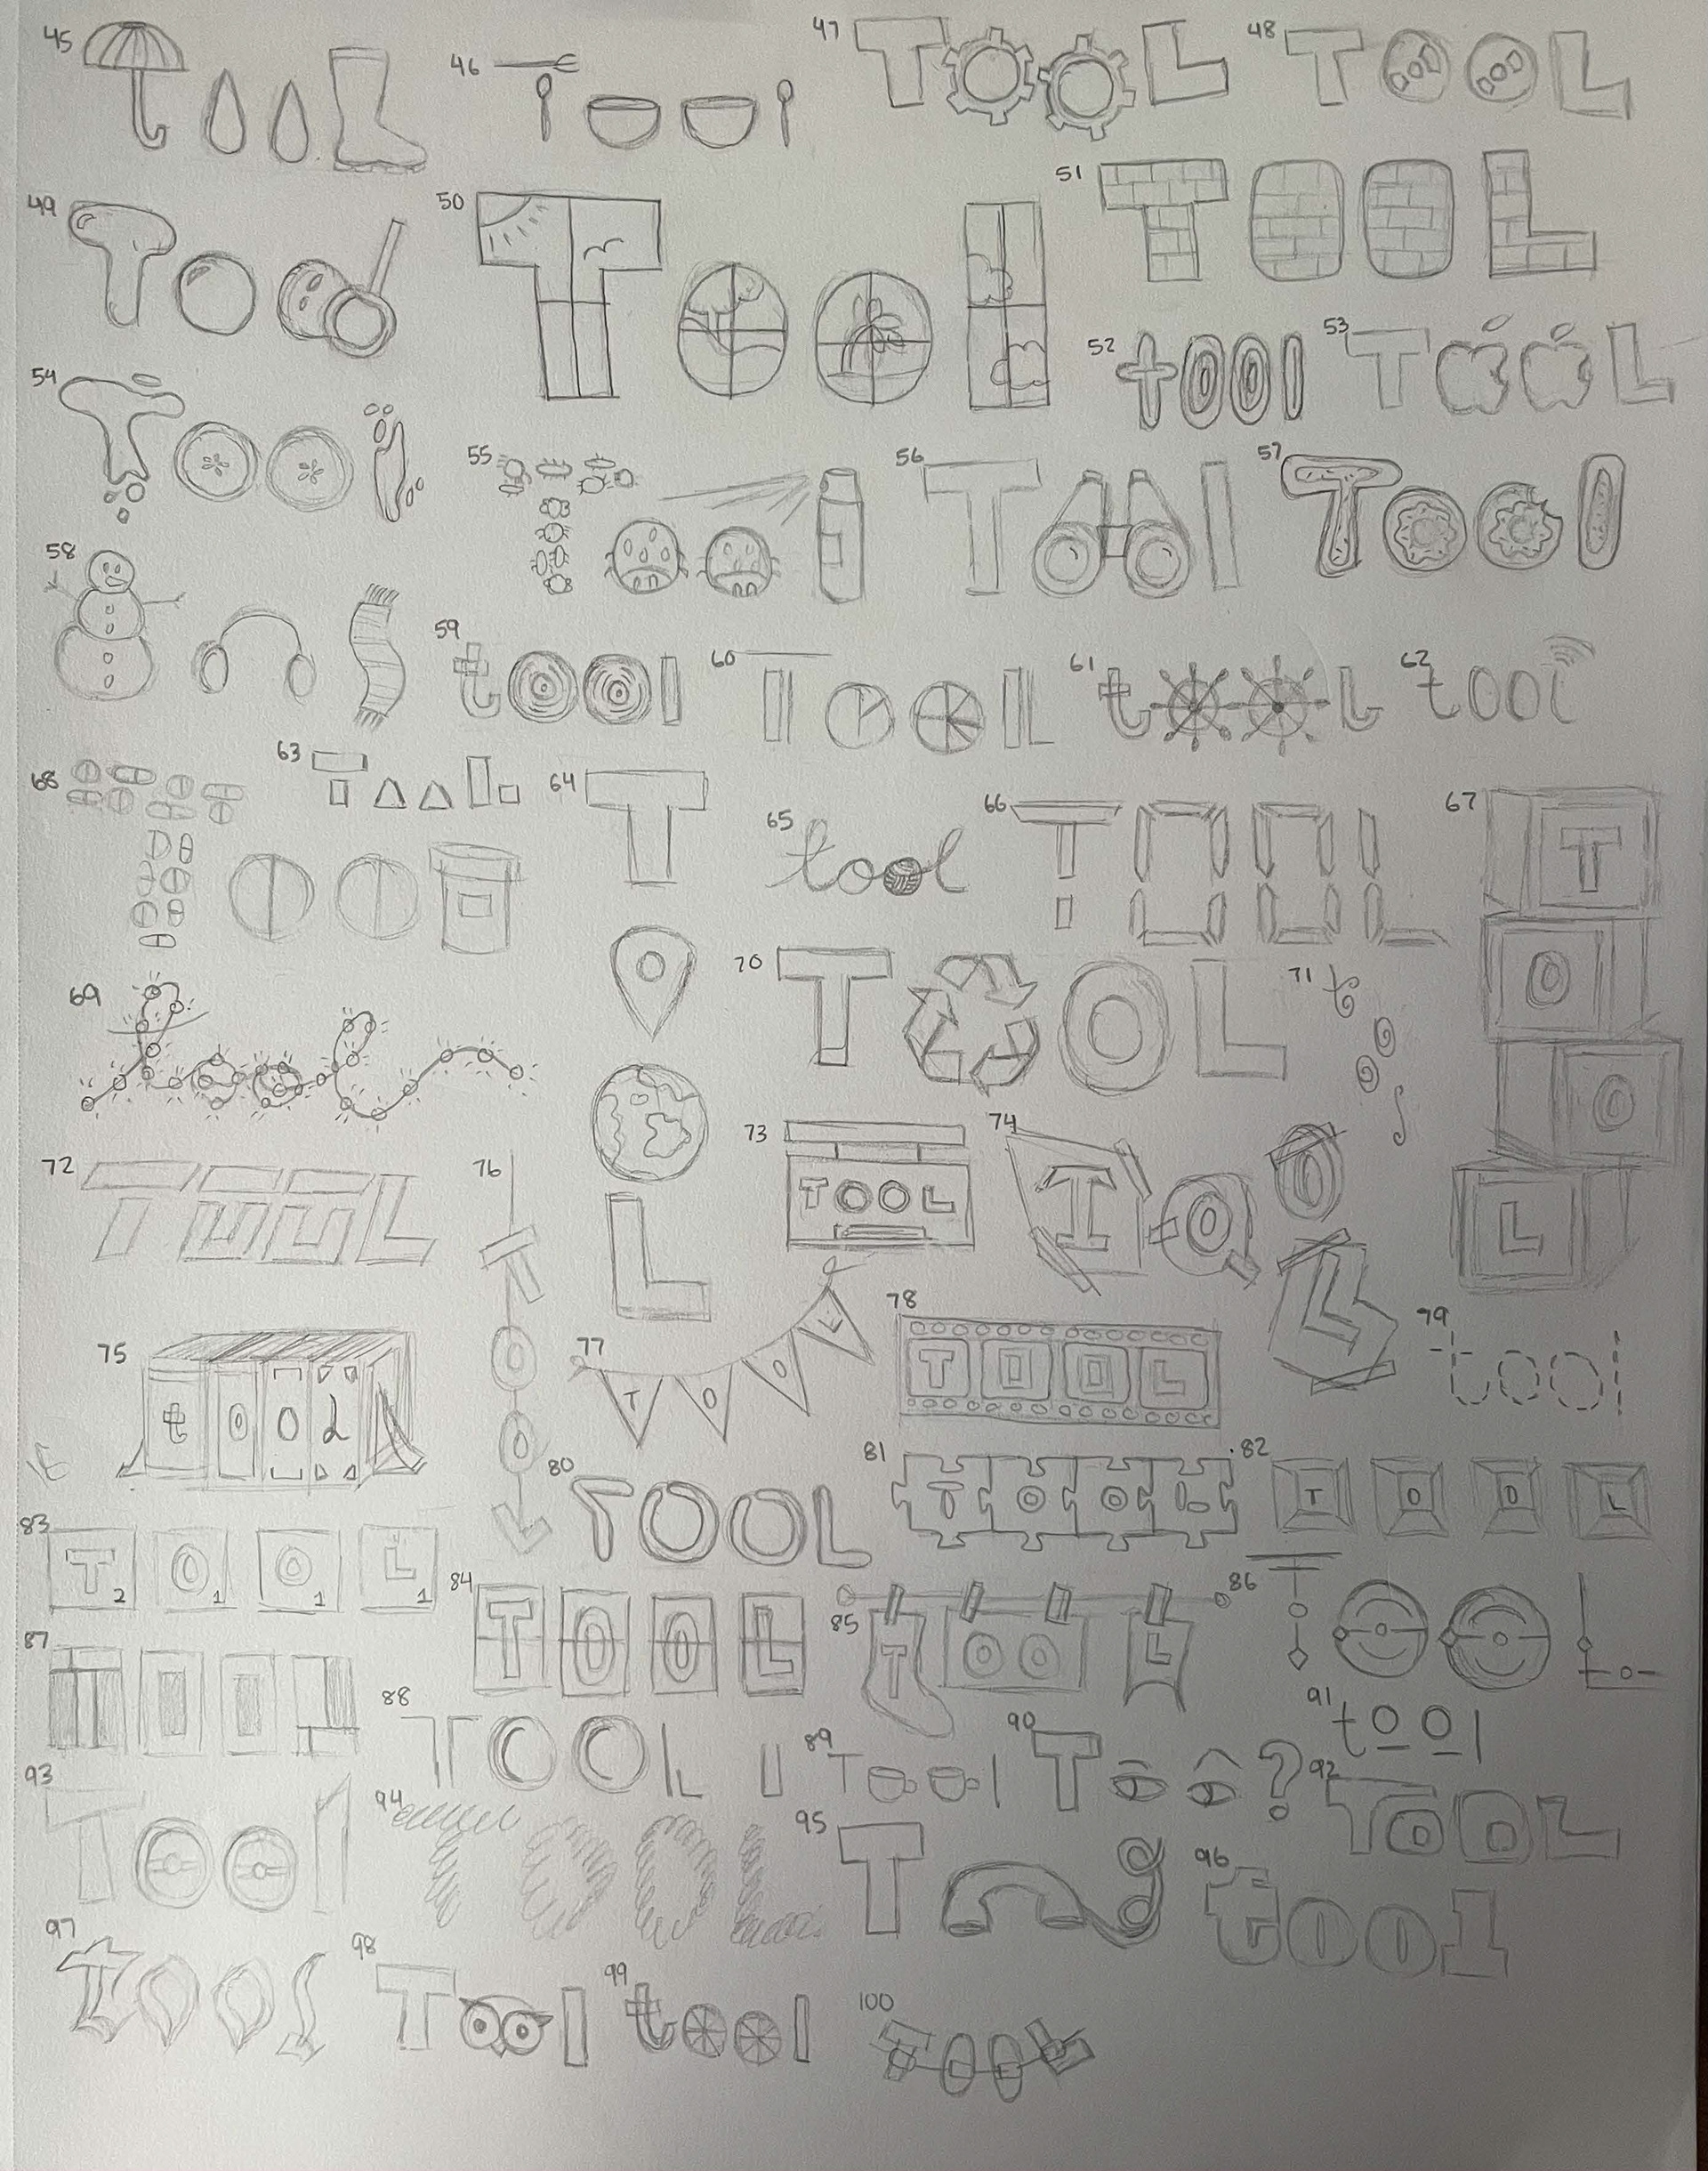 45
46
47 TOOL
48 TOOL
49 Too
50 Tool
51 TOOL
52 tool
53 TOOL
54 Tool
55
56 Tool
57 Tool
58
59 tool
60 TOOL
61 tool
62 tool
68
63
64 T
L
65 tool
66 TOOL
67 T
O
O
L
69 tool
70 T OL
71 tool
72 TOOL
73 TOOL
74 TOOL
75 tool
76 TOOL
77 TOOL
78 TOOL
79 tool
80 TOOL
81 TOOL
82 TOOL
83 T2 O1 O1 L1
84 TOOL
85 TOOL
86 TOOL
87 TOOL
88 TOOL
89 Tool
90 T ?
91 tool
92 TOOL
93 Tool
94 TOOL
95 T
96 tool
97 tool
98 Tool
99 tool
100 TOOL